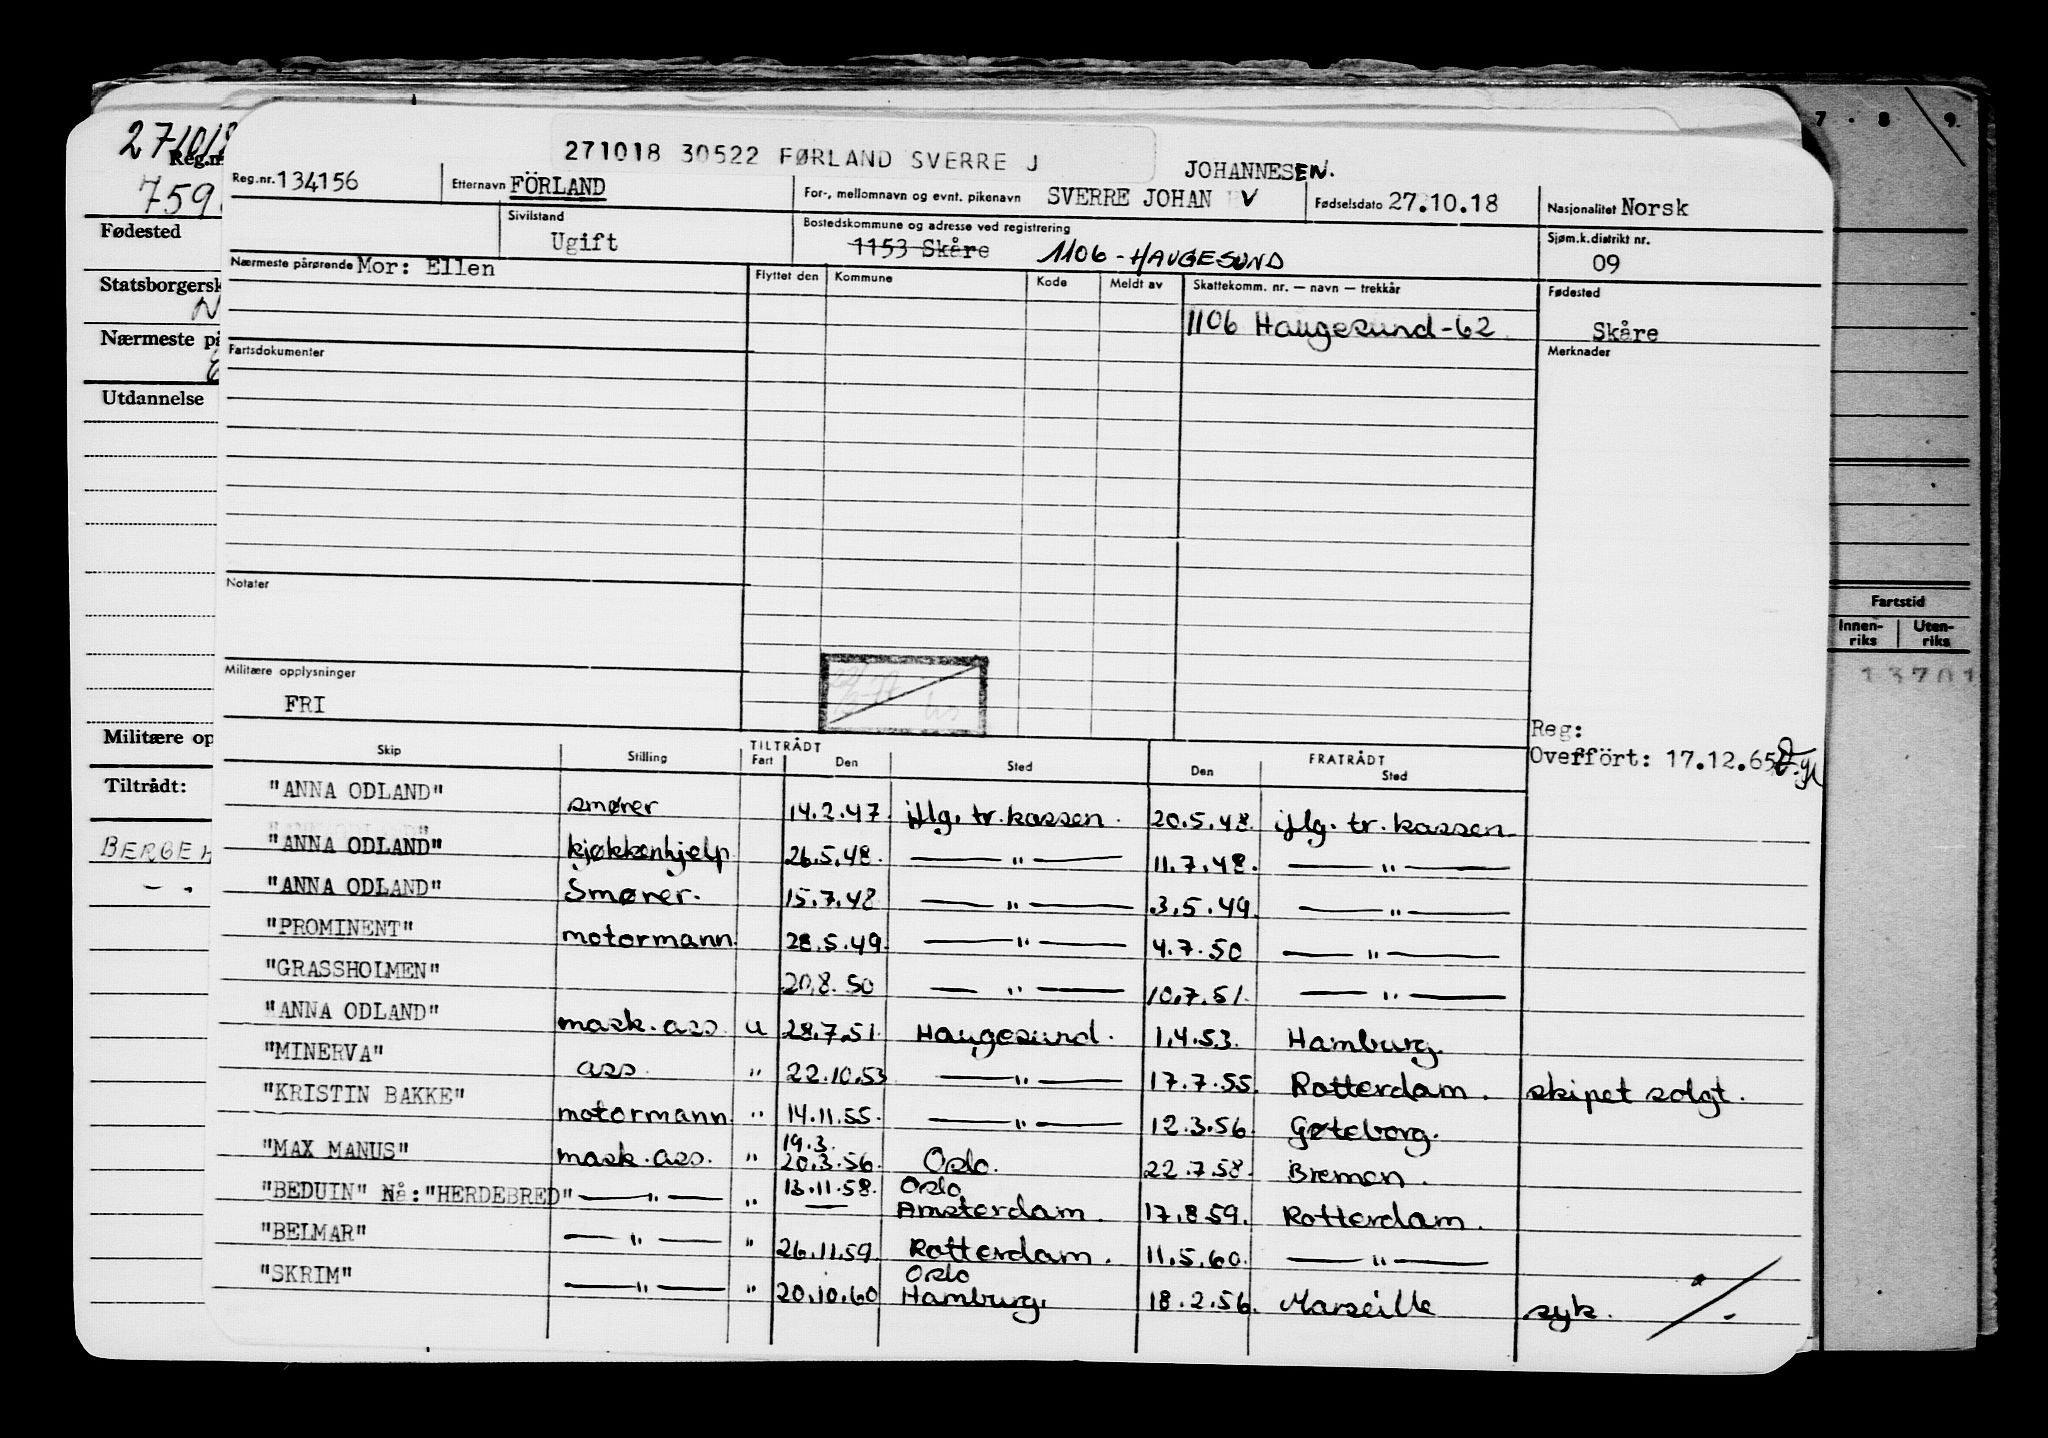 271018 30522 FØRLAND SVERRE J
JOHANNESEN.
Reg.nr. 134156 Etternavn FÖRLAND For-, mellomnavn og evnt. pikenavn SVERRE JOHAN V Fødselsdato 27.10.18 Nasjonalitet Norsk
Sivilstand Ugift Bostedskommune og adresse ved registrering 1153 Skåre 1106 - HAUGESUND Sjøm.k.distrikt nr. 09
Nærmeste pårørende Mor: Ellen Flyttet den Kommune Kode Meldt av Skattekomm. nr. — navn — trekkår Fødested
1106 Haugesund-62 Skåre
Fartsdokumenter Merknader
Notater
Militære opplysninger
FRI
Reg:
Overfört: 17.12.65
Skip Stilling TILTRÅDT FRATRÅDT
Fart Den Sted Den Sted
"ANNA ODLAND" smører 14.2.47. iflg. tr.kassen. 20.5.48. iflg. tr.kassen
"ANNA ODLAND" kjøkkenhjelp 26.5.48. — " — 11.7.48. — " —
"ANNA ODLAND" Smører. 15.7.48 — " — 3.5.49. — " —
"PROMINENT" motormann. 28.5.49. — " — 4.7.50 — " —
"GRASSHOLMEN" 20.8.50 — " — 10.7.51. — " —
"ANNA ODLAND" mask.ass. u 28.7.51. Haugesund. 1.4.53. Hamburg.
"MINERVA" ass. " 22.10.53 — " — 17.7.55. Rotterdam. skipet solgt.
"KRISTIN BAKKE" motormann. " 14.11.55. — " — 12.3.56. Gøteborg.
19.3.
"MAX MANUS" mask.ass. " 20.3.56. Oslo. 22.7.58. Bremen.
13.11.58. Oslo
"BEDUIN" Nå: "HERDEBRED" — " — " — Amsterdam. 17.8.59. Rotterdam.
"BELMAR" — " — " 26.11.59. Rotterdam. 11.5.60. — " —
Oslo
"SKRIM" — " — " 20.10.60 Hamburg. 18.2.56. Marseille syk.
271018
Reg.n
759
Fødested
Statsborgersk
N
Nærmeste på
E
Utdannelse
Militære op
Tiltrådt:
BERGE H
7 · 8 9.
Fartstid
Innen-riks Uten-riks
13701